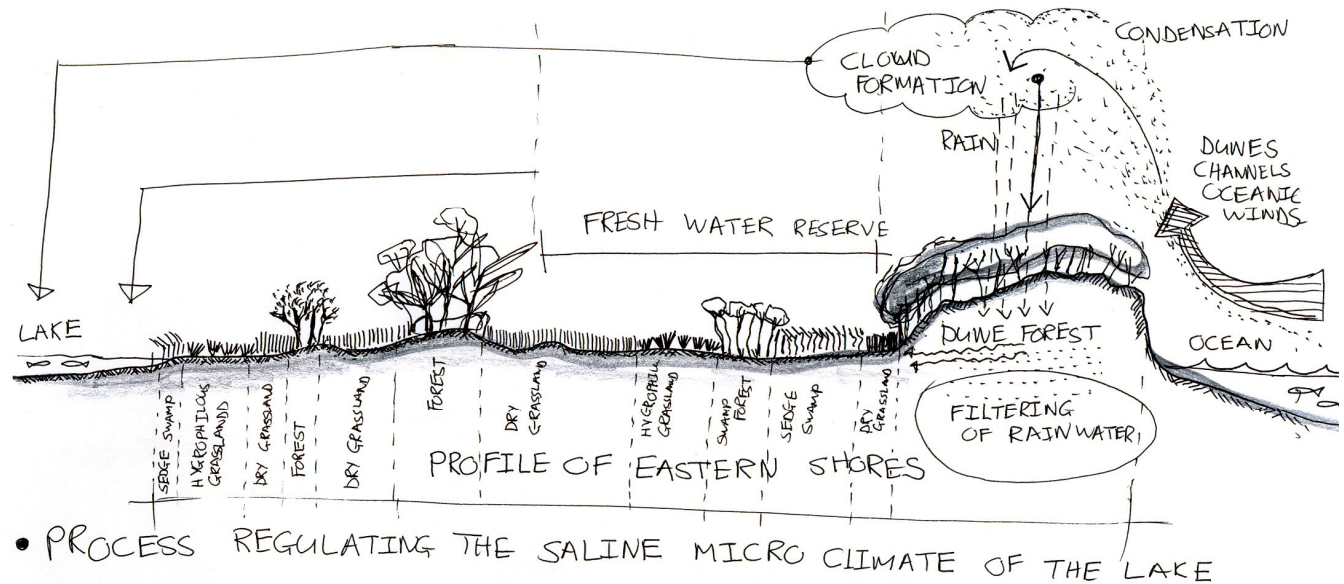 CONDENSATION
CLOUD
FORMATION
RAIN
DUNES
CHANNELS
OCEANIC
WINDS
FRESH WATER RESERVE
LAKE
DUNE FOREST
OCEAN
FILTERING
OF RAINWATER
SEDGE SWAMP
HYGROPHILOUS
GRASSLANDD
DRY GRASSLAND
FOREST
DRY GRASSLAND
FOREST
DRY
GRASSLAND
HYGROPHIL
GRASSLAND
SWAMP
FOREST
SEDGE
SWAMP
DRY
GRASSLAND
PROFILE OF EASTERN SHORES
• PROCESS REGULATING THE SALINE MICRO CLIMATE OF THE LAKE